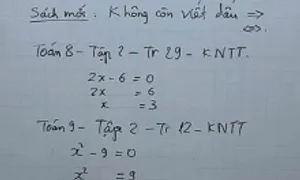 Sách mới: Không còn viết dấu =>
<=>.
Toán 8 - Tập 2 - Tr 29 - KNTT.
2x - 6 = 0
2x = 6
x = 3
Toán 9 - Tập 2 - Tr 12 - KNTT
x² - 9 = 0
x² = 9